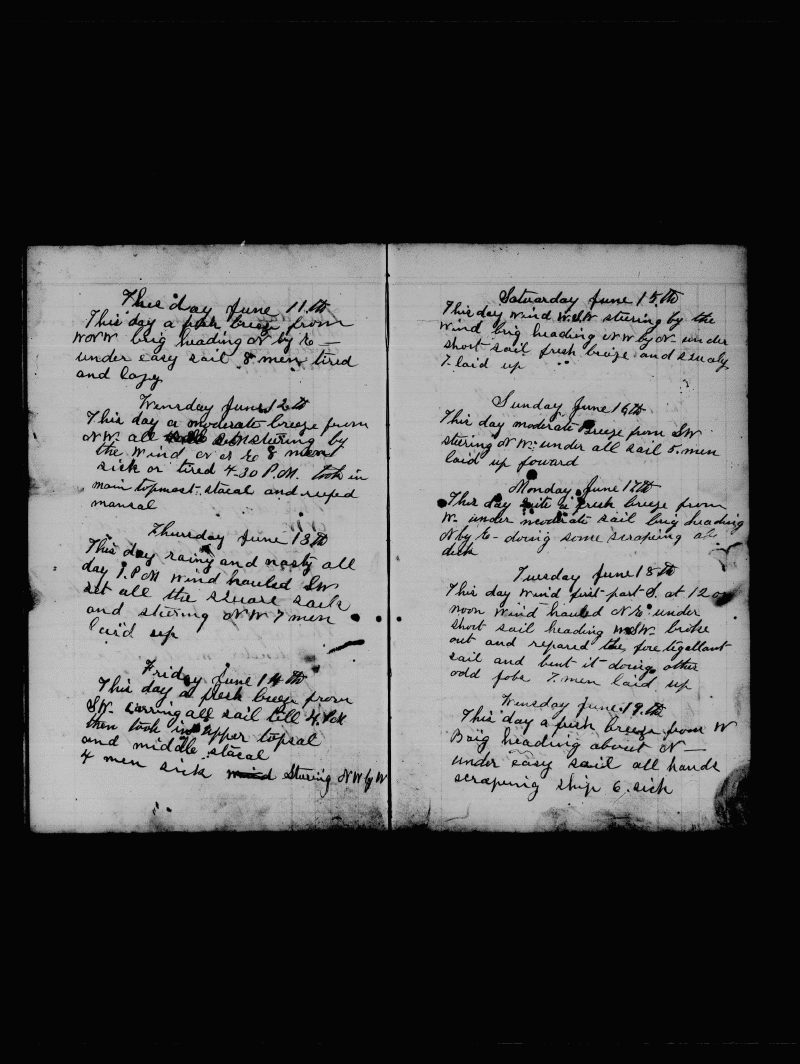 This day June 11.th
This day a fresh breeze from
WNW brig heading N by E —
under easy sail 8 men tired
and lazy
Wensday June 12th
This day a moderate breeze from
NW. all sturing by
the wind N E 8 men
sick or tired 4-30 P.M. took in
main topmost. stacal and reefed
mansal
Thursday June 13th
This day rainy and nasty all
day 1. P M wind hauled SW
set all the square sails
and sturing NW 7 men
laid up
Friday June 14th
This day a fresh breeze from
SW. carring all sail till 4. P.M
then took in upper topsal
and middle stacal
4 men sick Sturing NW by W
Satuarday June 15.th
This day wind W.SW sturing by the
wind brig heading NW by N. under
short sail fresh breize and squaly
7. laid up
Sunday June 16th
This day moderate Breeze from SW
sturing NW. under all sail 5. men
laid up foward
Monday June 17th
This day fresh breeze from
W. under moderate sail brig heading
N by E. doing some scraping
deck
Tuesday June 18th
This day wind first part S. at 12
noon wind hauled N E. under
short sail heading WSW. broke
out and repared the fore tegallant
sail and bent it doing other
odd jobs 7. men laid up
Wensday June 19.th
This day a fresh breeze from W
Baig heading about N —
under easy sail all hands
scrapeing ship 6. sick